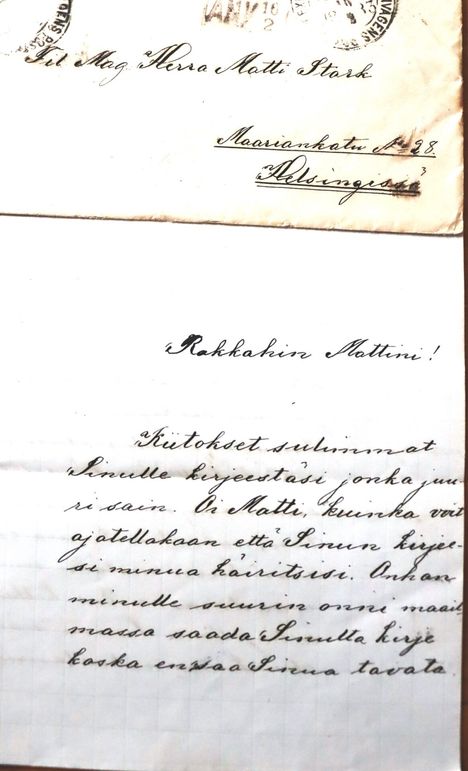 VAGENS PO
JANV 16
2
VAGENS
Fil Mag Herra Matti Stark
Maariankatu No 28
Helsingissä
Rakkahin Mattini!
Kiitokset sulimmat
Sinulle kirjeestäsi jonka juu-
ri sain. Oi Matti, kuinka voit
ajatellakaan että Sinun kirjee-
si minua häiritsisi. Onhan
minulle suurin onni maail-
massa saada Sinulta kirje
koska en saa Sinua tavata.